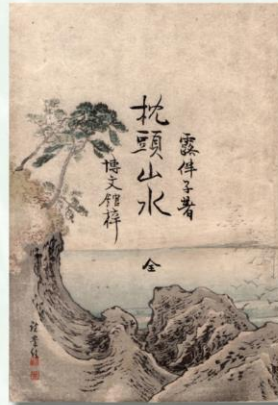 露伴子著
枕頭山水 全
博文館梓